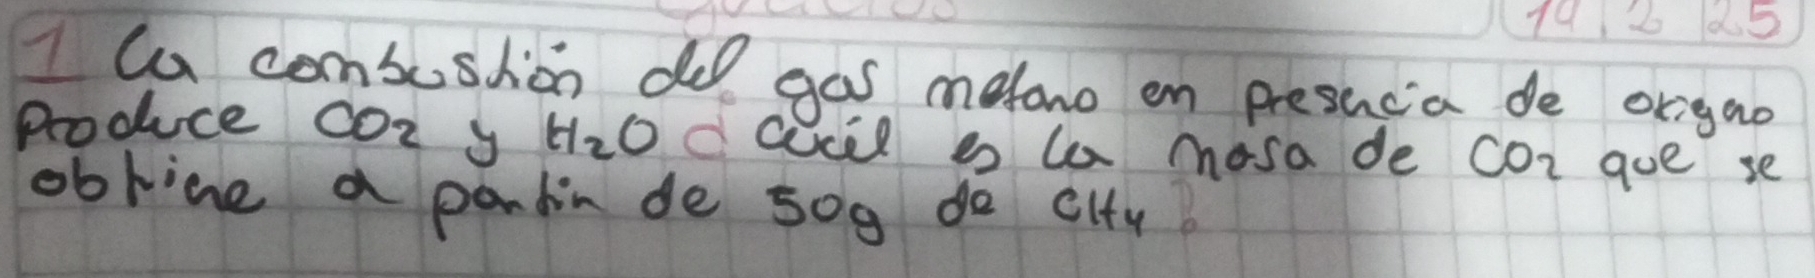 19 2 25
1 La combustión del gas metano en presencia de oxigno
produce CO2 y H2O ¿ cuál es la masa de CO2 que se
obtiene a partin de 50g de CH4?